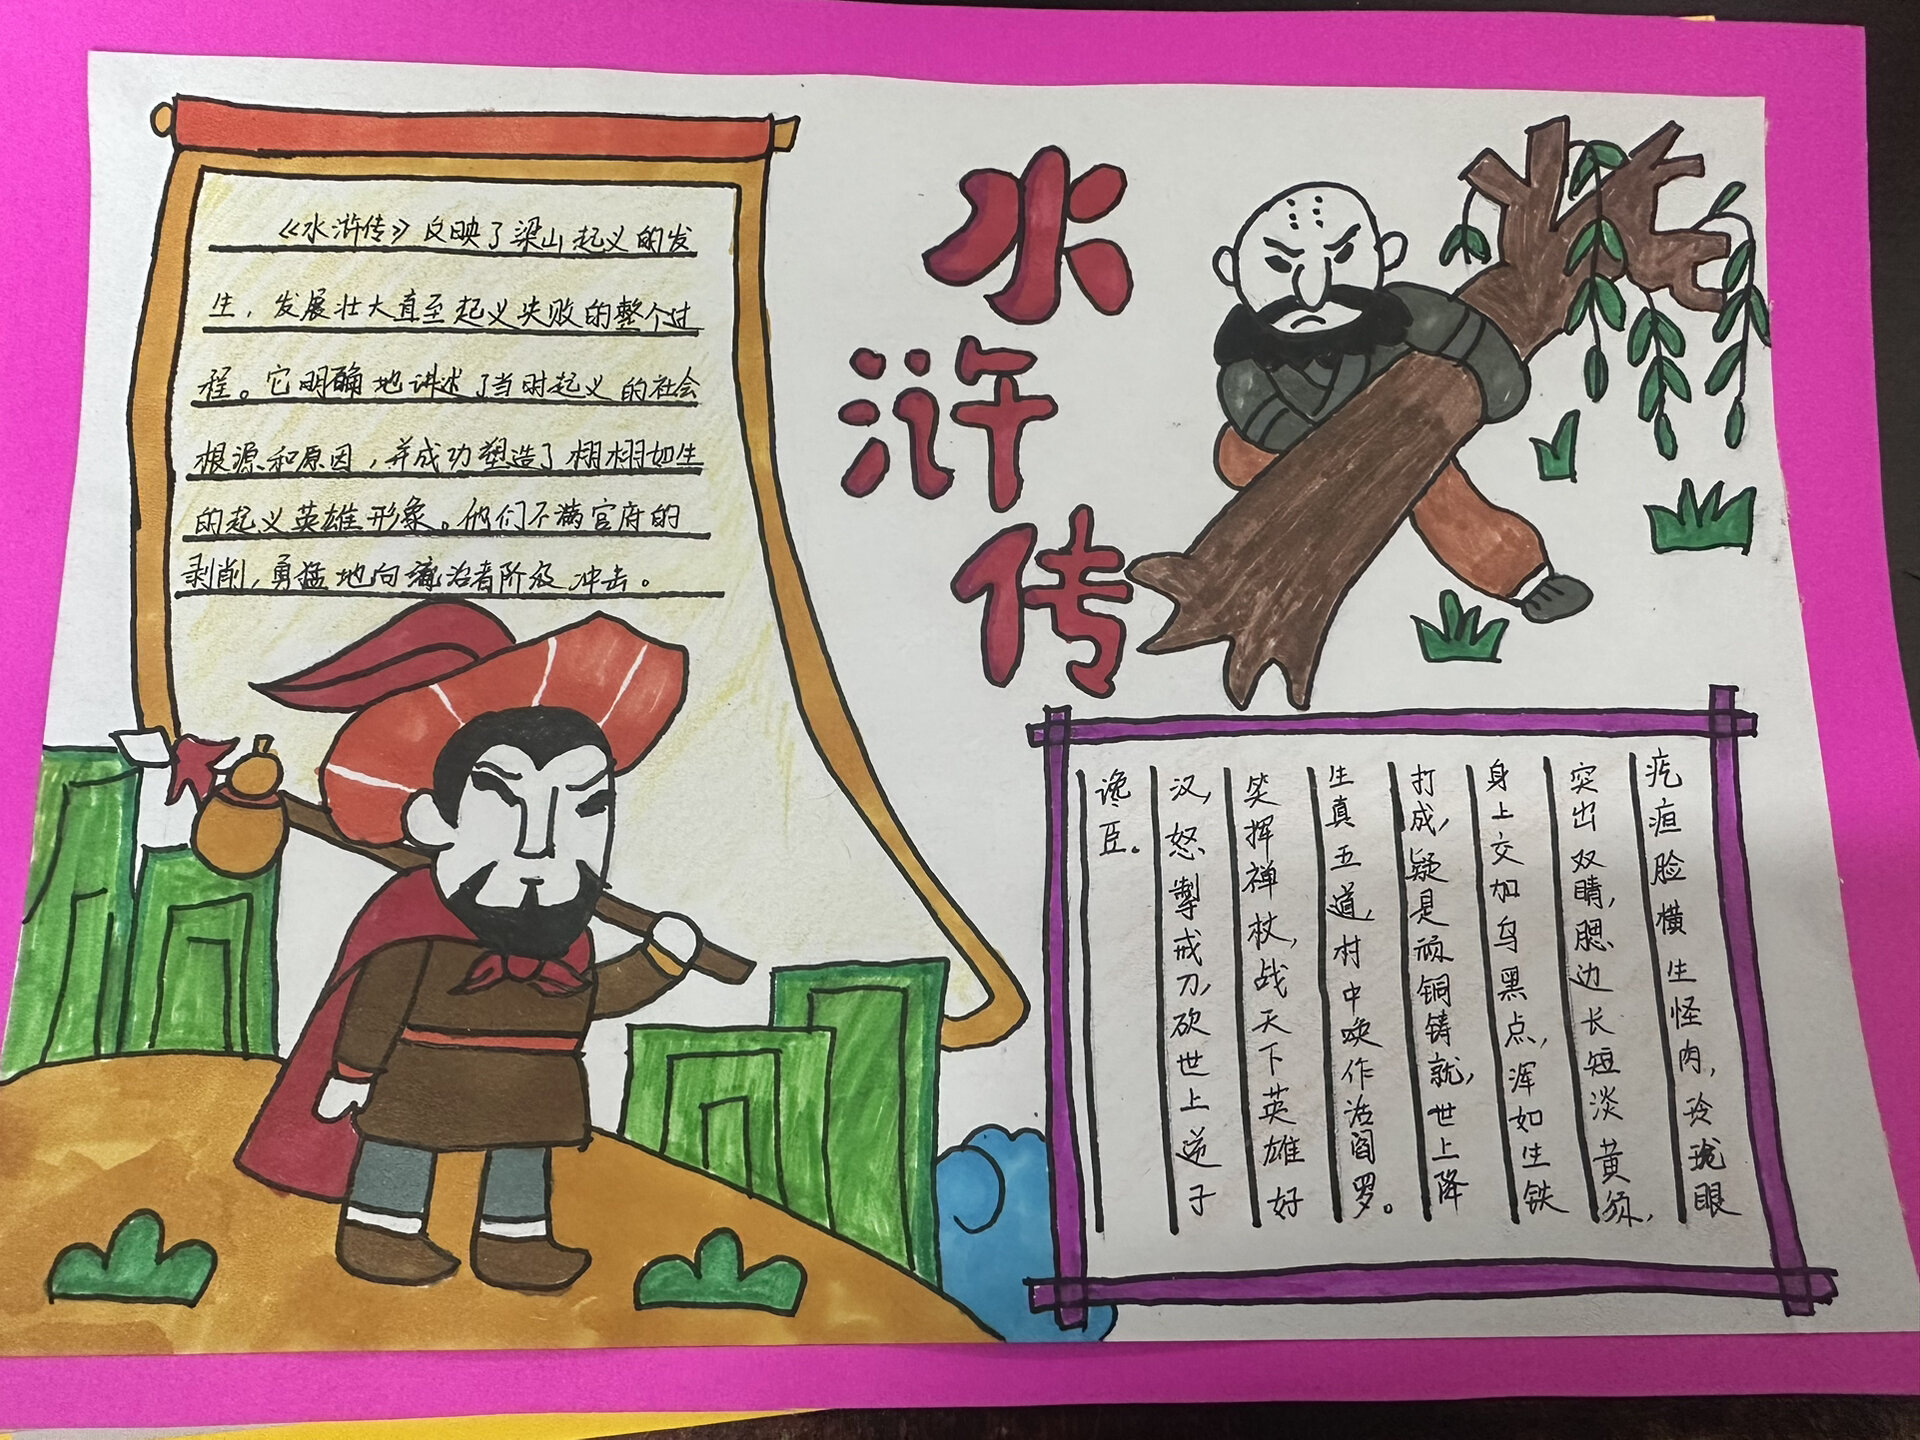 《水浒传》反映了梁山起义的发
生，发展壮大直至起义失败的整个过
程。它明确地讲述了当时起义的社会
根源和原因，并成功塑造了栩栩如生
的起义英雄形象。他们不满官府的
剥削，勇猛地向统治者阶级冲击。
水浒传
疙疸脸横生怪肉，玲珑眼
突出双睛，腮边长短淡黄须，
身上交加乌黑点，浑如生铁
打成，疑是顽铜铸就，世上降
生真五道，村中唤作活阎罗。
笑挥禅杖，战天下英雄好
汉，怒掣戒刀，砍世上逆子
谗臣。